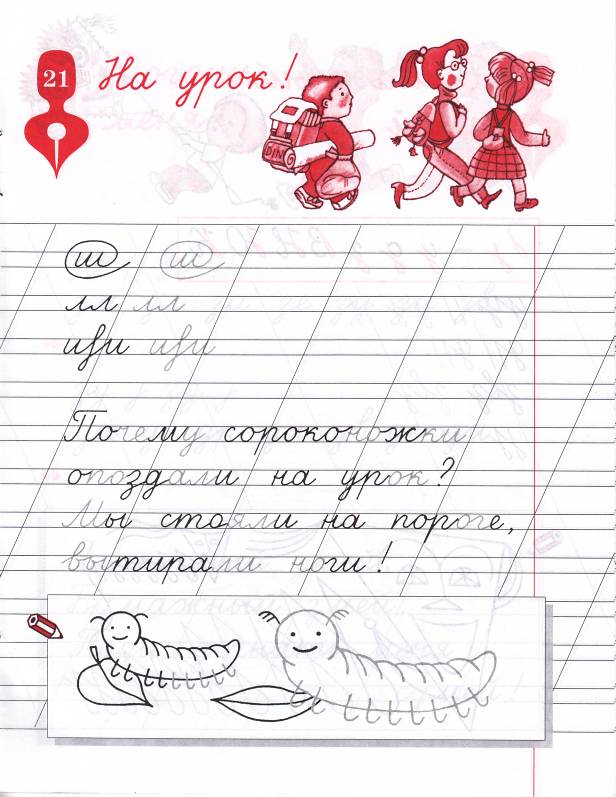 21
На урок!
DIN
ш ш
лл лл
иfи иfи
Почему сороконожки
опоздали на урок?
Мы стояли на пороге,
вытирали ноги!